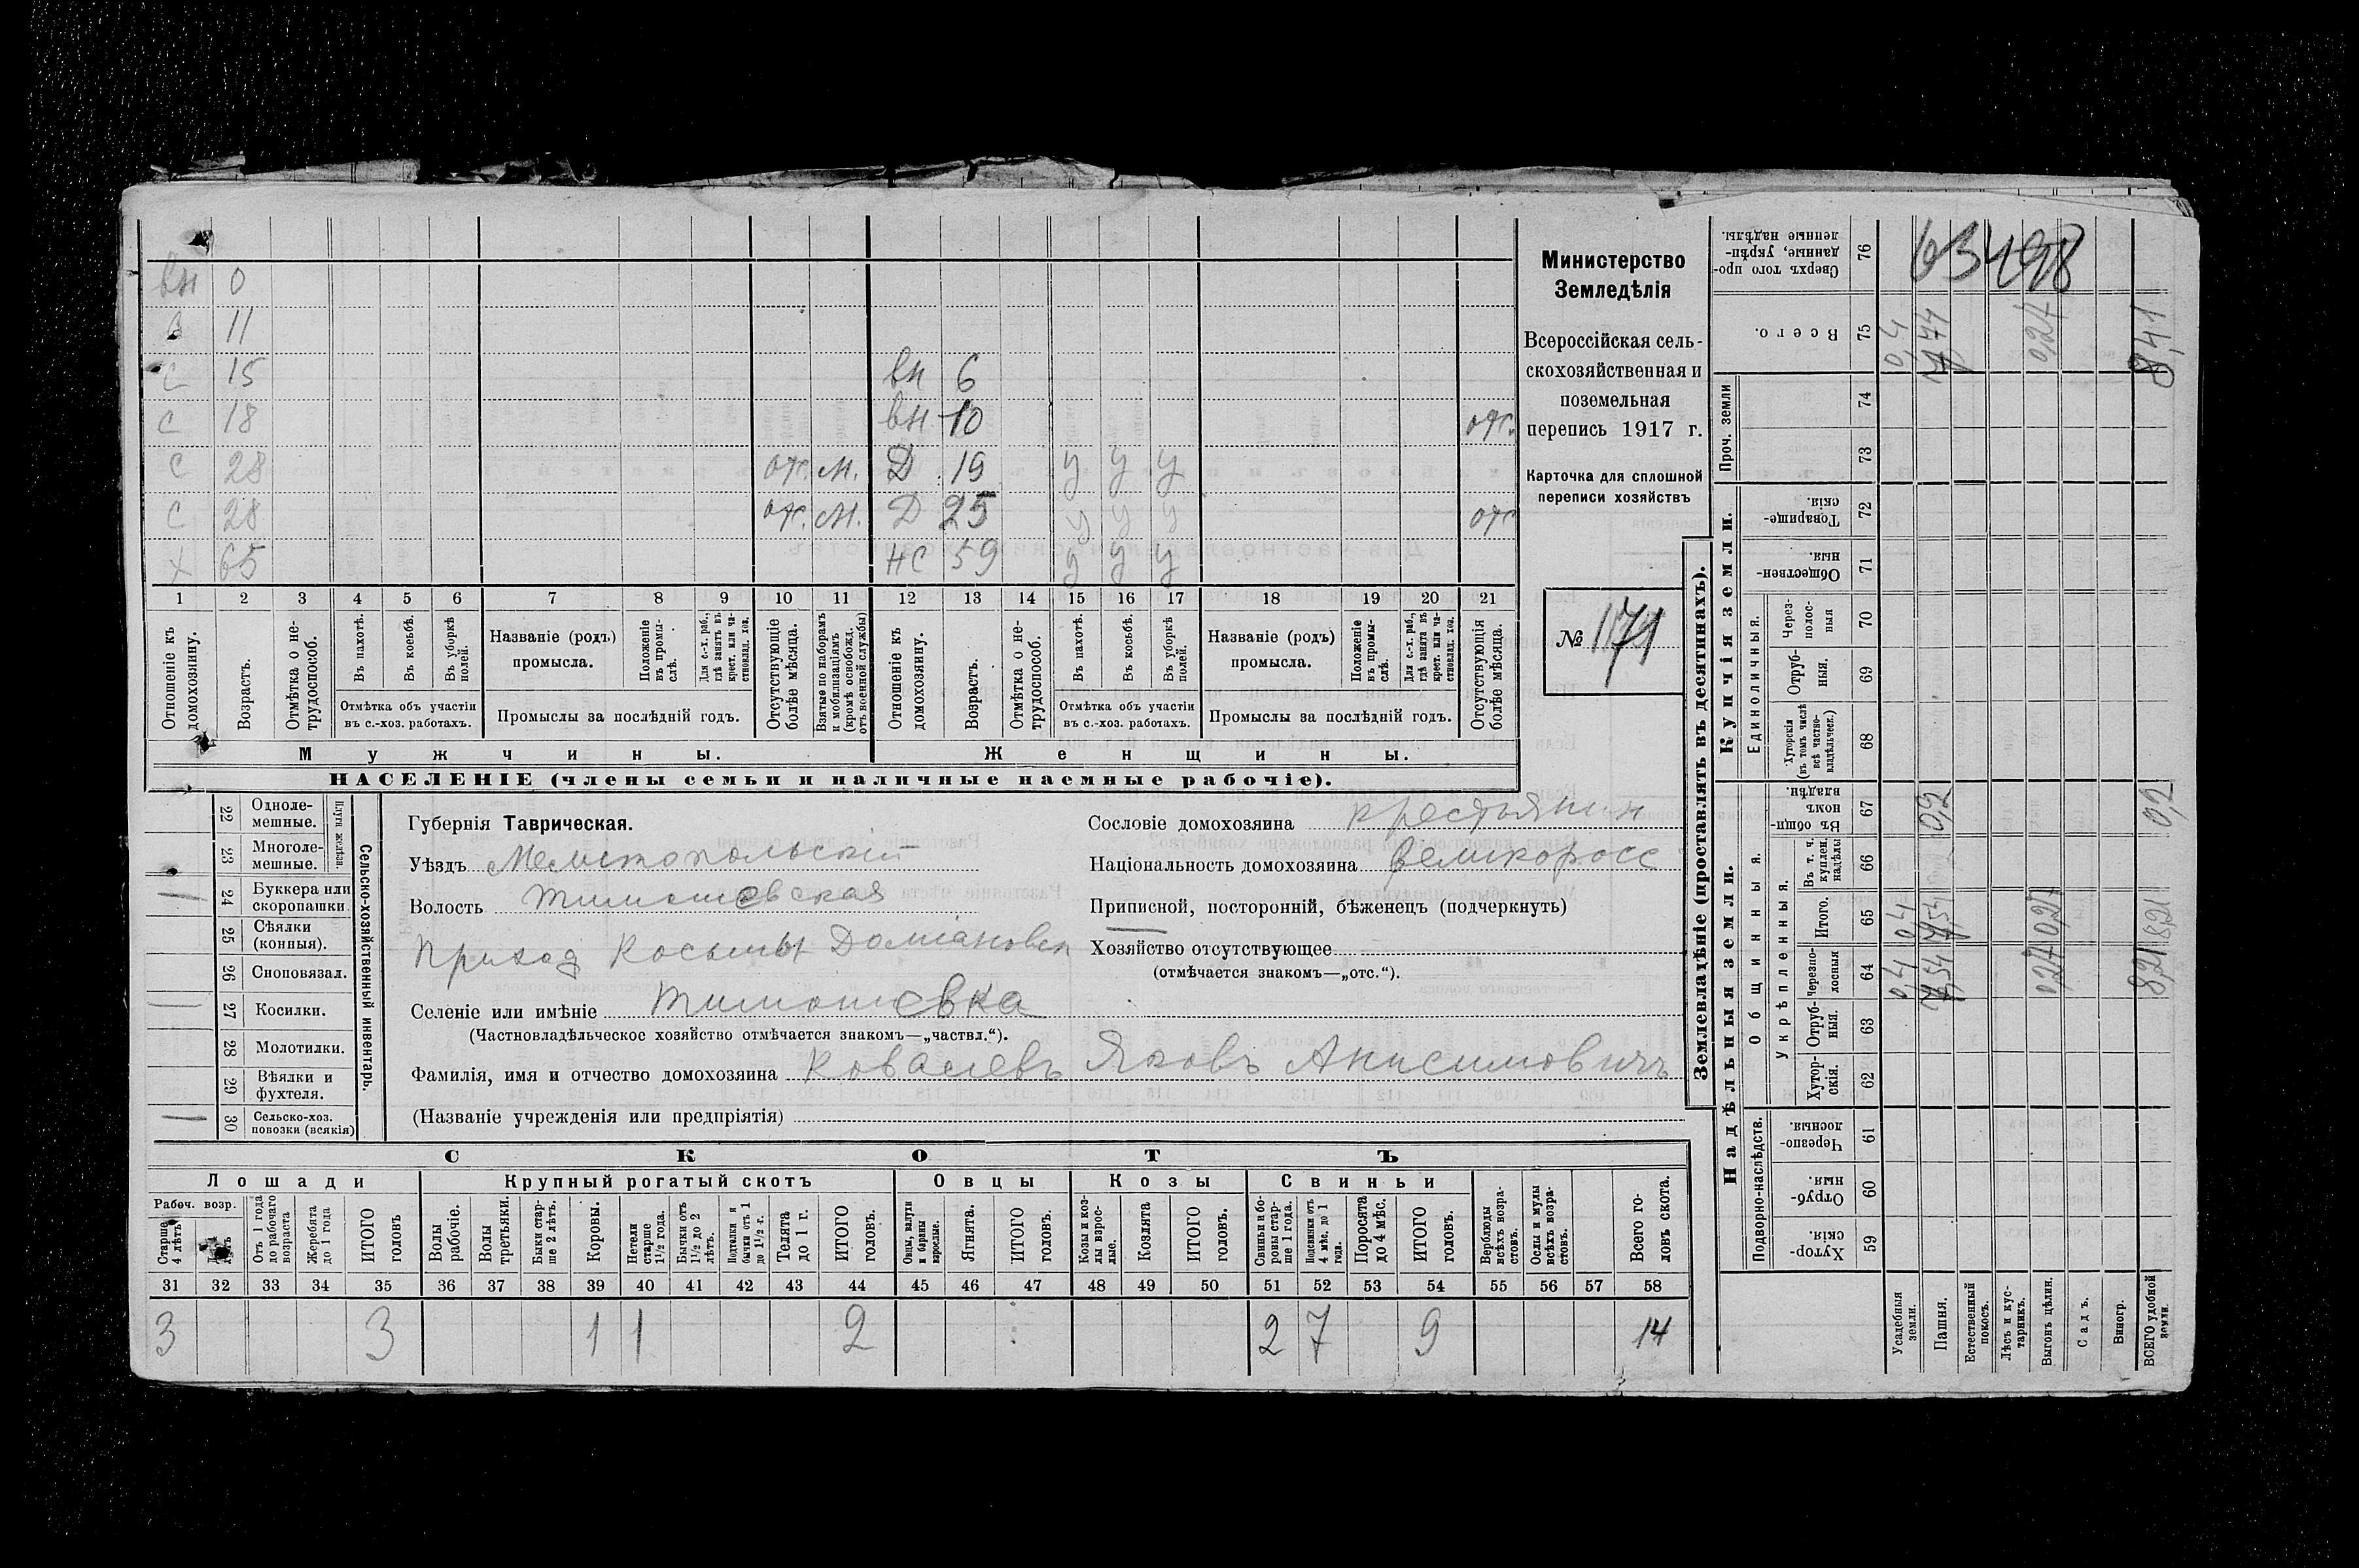 вн 0
в 11
с 15 вн 6
с 18 вн 10 отс.
с 28 отс. м. Д 19 у у у
с 28 отс. м. Д 25 у у у отс
х 65 нс 59 у у у
1 2 3 4 5 6 7 8 9 10 11 12 13 14 15 16 17 18 19 20 21
Отношеніе къ домохозяину.
Возрастъ.
Отмѣтка о не-трудоспособ.
Въ пахотѣ.
Въ косьбѣ.
Въ уборкѣ полей.
Отмѣтка объ участіи въ с.-хоз. работахъ.
Названіе (родъ) промысла.
Положеніе въ промы-слѣ.
Для с.-х. раб., гдѣ занятъ въ крест. или ча-стновлад. хоз.
Промыслы за послѣдній годъ.
Отсутствующіе болѣе мѣсяца.
Взятые по наборамъ и мобилизаціямъ (кромѣ освобожд. отъ военной службы)
Отношеніе къ домохозяину.
Возрастъ.
Отмѣтка о не-трудоспособ.
Въ пахотѣ.
Въ косьбѣ.
Въ уборкѣ полей.
Отмѣтка объ участіи въ с.-хоз. работахъ.
Названіе (родъ) промысла.
Положеніе въ промы-слѣ.
Для с.-х. раб., гдѣ занята въ крест. или ча-стновлад. хоз.
Промыслы за послѣдній годъ.
Отсутствующія болѣе мѣсяца.
Мужчины. Женщины.
НАСЕЛЕНІЕ (члены семьи и наличные наемные рабочіе).
Министерство
Земледѣлія
Всероссійская сель-
скохозяйственная и
поземельная
перепись 1917 г.
Карточка для сплошной
переписи хозяйствъ
№ 171
22 Одноле-мешные.
23 Многоле-мешные.
Плуги желѣзн.
24 Буккера или скоропашки
25 Сѣялки (конныя).
26 Сноповязал.
27 Косилки.
28 Молотилки.
29 Вѣялки и фухтеля.
30 Сельско-хоз. повозки (всякія)
Сельско-хозяйственный инвентарь.
Губернія Таврическая.
Уѣздъ Мелитопольскій
Волость Тимошевская
Приход Косьмы Даміановск
Селеніе или имѣніе Тимошевка
(Частновладѣльческое хозяйство отмѣчается знакомъ—„частвл.“).
Фамилія, имя и отчество домохозяина Ковалевъ Яковъ Анисимовичъ
(Названіе учрежденія или предпріятія)
Сословіе домохозяина крестьянин
Національность домохозяина великоросс
Приписной, посторонній, бѣженецъ (подчеркнуть)
Хозяйство отсутствующее
(отмѣчается знакомъ—„отс.“).
СКОТЪ
Лошади Крупный рогатый скотъ Овцы Козы Свиньи
Рабоч. возр.
Старше 4 лѣтъ
Отъ 1 года до рабочаго возраста
Жеребята до 1 года
ИТОГО головъ
Волы рабочіе.
Волы третьяки.
Быки стар-ше 2 лѣтъ.
Коровы.
Нетели старше 1½ года.
Бычки отъ 1½ до 2 лѣтъ.
Подтелки и бычки отъ 1 до 1½ г.
Телята до 1 г.
ИТОГО головъ.
Овцы, валухи и бараны взрослые.
Ягнята.
ИТОГО головъ.
Козы и коз-лы взрос-лые.
Козлята
ИТОГО головъ.
Свиньи и бо-ровы стар-ше 1 года.
Подсвинки отъ 4 мѣс. до 1 года.
Поросята до 4 мѣс.
ИТОГО головъ.
Верблюды всѣхъ возра-стовъ.
Ослы и мулы всѣхъ возра-стовъ.
Всего го-ловъ скота.
31 32 33 34 35 36 37 38 39 40 41 42 43 44 45 46 47 48 49 50 51 52 53 54 55 56 57 58
3 3 1 1 2 2 7 9 14
Землевладѣніе (проставлять въ десятинахъ).
Надѣльныя земли.
Купчія земли.
Проч. земли
Подворно-наслѣдств.
Общинныя.
Укрѣпленныя.
Единоличныя.
Хутор-скія. 59
Отруб-ныя. 60
Черезпо-лосныя. 61
Хутор-скія. 62
Отруб-ныя. 63
Черезпо-лосныя 64
Итого. 65
Въ т. ч. куплен. надѣлы 66
Въ общи-номъ владѣн. 67
Хуторскія (въ томъ числѣ всѣ частно-владѣльческ.) 68
Отруб-ныя. 69
Через-полос-ныя 70
Обществен-ныя. 71
Товарище-скія. 72
73
74
Всего. 75
Сверхъ того про-данные, укрѣп-ленные надѣлы. 76
63498
Усадебныя земли. 0,4 0,4 0,4
Пашня. 7,54 7,54 0,2 7,74
Естественный покосъ.
Лѣсъ и кус-тарникъ.
Выгонъ цѣлин. 0,27 0,27 0,27
Садъ.
Виногр.
ВСЕГО удобной земли. 8,21 8,21 0,2 8,41